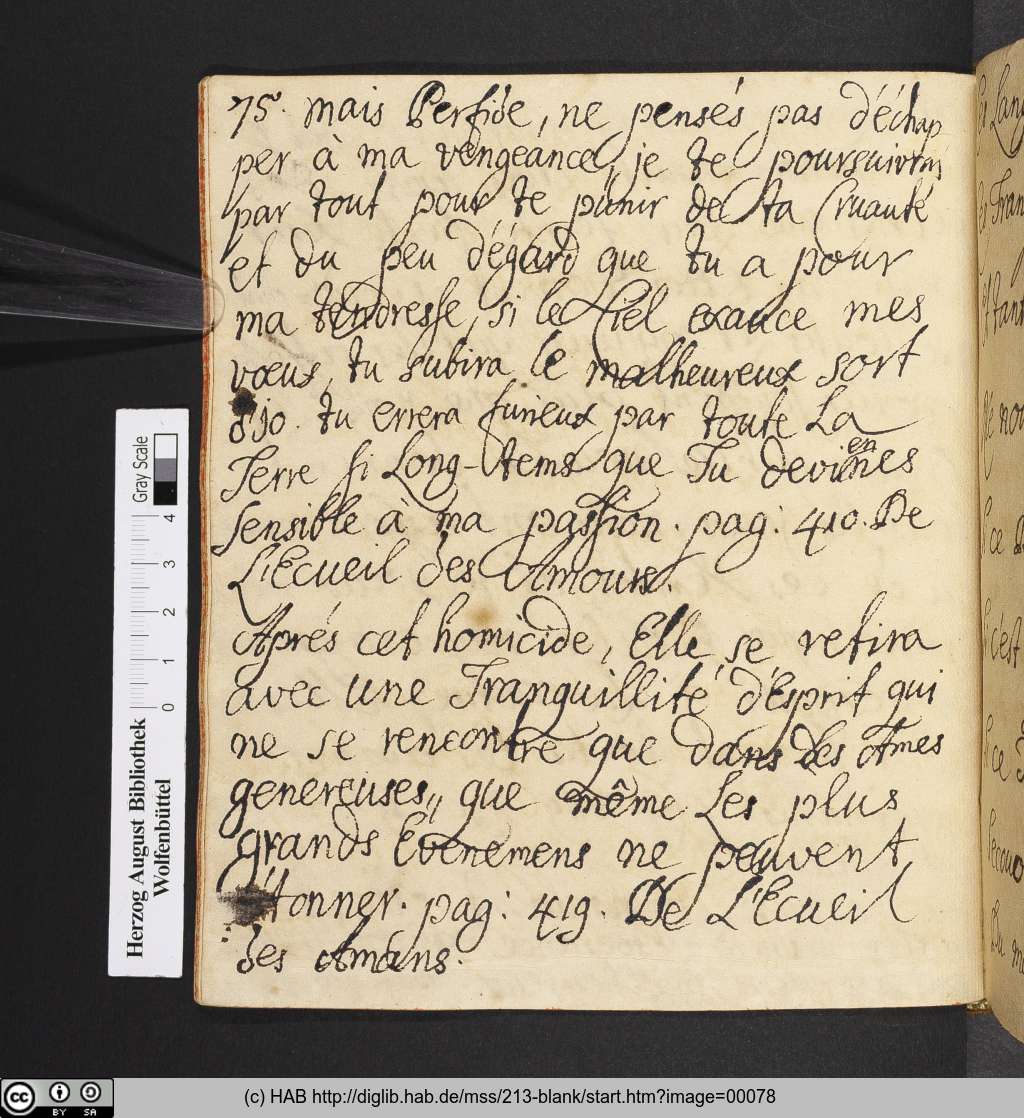 75. mais Perfide, ne pensés pas d'échap
per à ma vengeance, je te poursuivrai
par tout pour te punir de ta Cruauté
et du peu d'égard que tu a pour
ma tendresse, si le Ciel exauce mes
vœux, tu subira le malheureux sort
d'io. tu errera furieux par toute La
Terre si Long-tems que Tu deviennes
sensible à ma passion. pag: 410. De
L'Ecueil des Amours.
Aprés cet homicide, Elle se retira
avec Une Tranquillité d'Esprit qui
ne se rencontre que dans des Ames
genereuses, que même Les plus
grands Evenemens ne peuvent
tonner. pag: 419. De L'Ecueil
des Amans.
Herzog August Bibliothek
Wolfenbüttel
Gray Scale
0 1 2 3 4
cc BY SA
(c) HAB http://diglib.hab.de/mss/213-blank/start.htm?image=00078